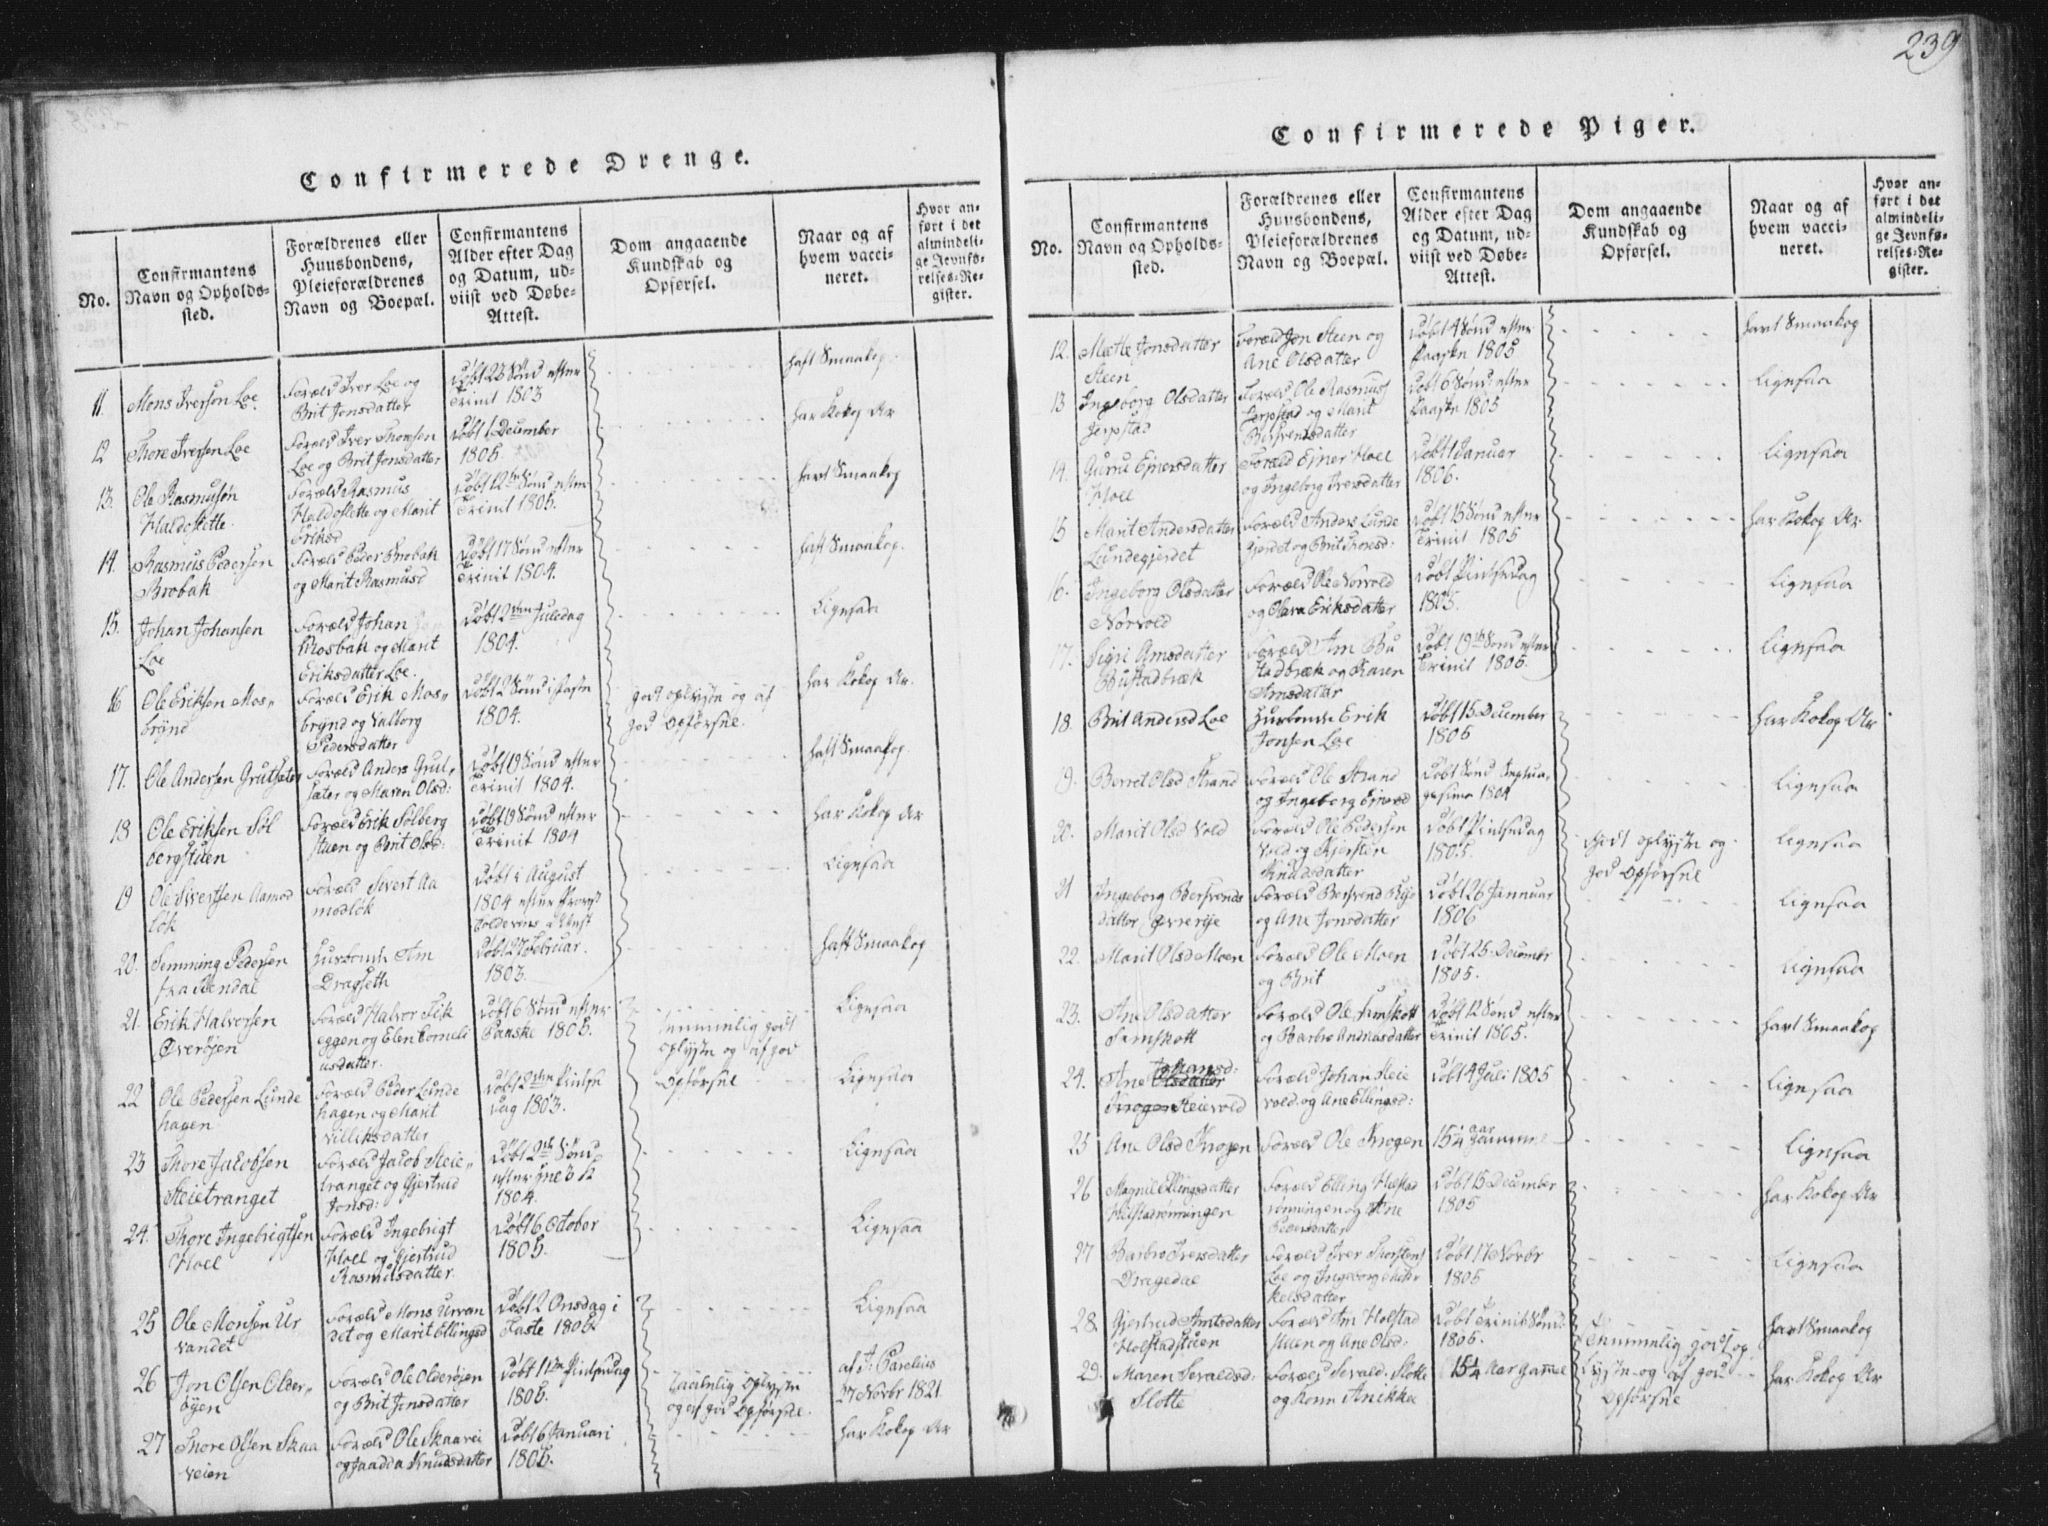 239
Confirmerede Drenge.
No.
Confirmantens
Navn og Opholds-
sted.
Forældrenes eller
Huusbondens,
Pleieforældrenes
Navn og Boepæl.
Confirmantens
Alder efter Dag
og Datum, ud-
viist ved Døbe-
Attest.
Dom angaaende
Kundskab og
Opførsel.
Naar og af
hvem vacci-
neret.
Hvor an-
ført i det
almindeli-
ge Jevnfø-
relses-Re-
gister.
11. Mons Iversen Loe
Foræld Iver Loe og
Brit Jonsdatter
Døbt 23 Sønd efter
Trinit 1803
haft Smaakop.
12 Thore Iversen Loe
Foræld Iver Thoresen
Loe og Brit Jonsdatter
Døbt 1 December
1805.
har Kokop Ar
13. Ole Rasmusøn
Haldoslette
Foræld Rasmus
Haldoslette og Marit
Eriksd
Døbt 12te Sønd efter
Trinit 1805.
havt Smaakop
14. Rasmus Pedersen
Brobak
Foræld Peder Brobak
og Marit Rasmusd
Døbt 17 Sønd efter
Trinit 1804.
haft Smaakop.
15. Johan Johansen
Loe
Foræld Johan
Mosbak og Marit
Eriksdatter Loe.
Døbt 2den Juledag
1804.
Lignsaa
16 Ole Eriksen Mos-
brynd
Foræld Erik Mos-
brynd og Valborg
Pedersdatter
Døbt 2 Sønd i Faste
1804.
god oplyste og af
god Opførsel.
har Kokop Ar.
17. Ole Andersen Grutsæter
Foræld Anders Grut-
sæter og Maren Olsd:
Døbt 19 Sønd efter
Trinit 1804.
haft Smaakop
18 Ole Eriksen Søl
bergstuen
Foræld Erik Sølberg
stuen og Brit Olsd:
Døbt 19 Sønd efter
Trinit 1804
har Kokop Ar
19 Ole Sivertsen Aamod
løk
Foræld Sivert Aa
modløk
Døbt i August
1804 efter Provst
Attest
Lignsaa
20. Semming Pedersen
fra
Husbonde Arn
Dragseth
Døbt 27 Februar.
1803.
haft Smaakop
21. Erik Halvorsen
Øverøjen
Foræld Halvor Fisk
eggen og Elen Corneli
usdatter.
Døbt 6 Sønd efter
Paaske 1805.
temmelig godt
oplyste og af god
Opførsel
Lignsaa
22 Ole Pedersen Lunde
hagen
Foræld Peder Lunde
hagen og Marit
Villiksdatter
Døbt 2den Pintse
dag 1803.
Lignsaa
23 Thore Jacobsen
Steietranget
Foræld Jacob Steie-
tranget og Gjertrud
Jonsd:
Døbt 2de Sønd
efter
1804.
Lignsaa
24. Thore Ingebrigtsen
Hoel
Foræld Ingebrigt
Hoel og Gjertrud
Rasmusdatter
Døbt 6 October
1805.
Lignsaa
25 Ole Monsen Ur
vandet
Foræld Mons Urvan
det og Marit Ellingsd
Døbt 2 Onsdag i
Faste 1805.
Lignsaa
26 Jon Olsen Older-
øyen
Foræld Ole Olderøjen
og Brit Jonsdatter
Døbt 1ste Pintsedag
1805.
Taalelig oplyste
og af god Opførsel.
af J. Parelius
27 Novbr 1821.
27 Thore Olsen Skaa
veien
Foræld Ole Skaavei
og Knudsdatter
Døbt 6 Januari
1805.
har Kokop Ar
Confirmerede Piger.
No.
Confirmantens
Navn og Opholds-
sted.
Forældrenes eller
Huusbondens,
Pleieforældrenes
Navn og Boepæl.
Confirmantens
Alder efter Dag
og Datum, ud-
viist ved Døbe-
Attest.
Dom angaaende
Kundskab og
Opførsel.
Naar og af
hvem vacci-
neret.
Hvor an-
ført i det
almindeli-
ge Jevnfø-
relses-Re-
gister.
12. Mætte Jonsdatter
Steen
Foræld Jon Steen og
Ane Olsdatter
Døbt 4 Sønd efter
Paaske 1805
havt Smaakop
13 Ingeborg Olsdatter
Jerpstad
Foræld Ole Rasmus
Jerpstad og Marit
Bersvendsdatter
Døbt 6 Sønd: efter
Paaske 1805
Lignsaa
14. Guru Ejnersdatter
Hoel
Foræld Ejner Hoel
og Ingeborg Iversdatter
Døbt 1 Januar
1806.
Lignsaa
15 Marit Andersdatter
Lundegjerdet
Foræld Anders Lunde
gjerdet og Brit Thoresd:
Døbt 15 Sønd efter
Trinit 1805
har Kokop Ar
16. Ingeborg Olsdatter
Norvold
Foræld Ole Norvold
og Olava Eriksdatter
Døbt Pintsedag
1805.
Lignsaa
17. Sigri Arnsdatter
Bustadbræk
Foræld Arn Bu
stadbræk og Karen
Arnsdatter
Døbt 19de Sønd efter
Trinit 1805.
Lignsaa
18. Brit Andersd Loe
Husbonde Erik
Jonsen Loe
Døbt 15 December
1805
har Kokop Ar
19. Berret Olsd Strand
Foræld Ole Strand
og Ingeborg Ejnersd
Døbt Sønd Septua-
gesima 1804
Lignsaa
20. Marit Olsd Vold
Foræld Ole Pedersen
Vold og Kjersten
Knudsdatter
Døbt Pintsedag
1805.
Godt oplyste og
god Opførsel
Lignsaa
21 Ingeborg Bersvends
datter Øvrerye
Foræld Bersvend Rye
og Ane Jonsdatter
Døbt 26 Jannuar
1806
Lignsaa
22. Marit Olsd Moen
Foræld Ole Moen
og Brit
Døbt 25 Decembr
1805.
Lignsaa
23. Ane Olsdatter
Semskott
Foræld Ole Semskott
og Barbro Andreasdatter
Døbt 12 Sønd efter
Trinit 1805.
havt Smaakop
24. Ane Johansd:
Olsdatter
Krogen Steievold
Foræld Johan Steie
vold og Ane Ellingsd:
Døbt 4 Juli 1805
Lignsaa
25 Ane Olsd Krogen
Foræld Ole Krogen
15¼ aar gammel
Lignsaa
26 Magnil Ellingsdatter
Holstadrønningen
Foræld Elling Holstad
rønningen og Ane
Pedersdatter
Døbt 15 December
1805
har Kokop Ar
27 Barbro Iversdatter
Dragedal
Foræld Iver Thorstens
Loe og Ingeborg Mik-
kelsdatter
Døbt 17 Novbr
1805
Lignsaa
28. Gjertrud Arntsdatter
Holstadstuen
Foræld Arn Holstad
stuen og Ane Olsd:
Døbt Trinit Sønd:
1805.
Temmelig godt op-
lyste og af god
Opførsel
havt Smaakop
29. Maren Sevaldsd:
Slotte
Foræld Sevald Slotte
og Kone Anikken
15¼ Aar gammel
har Kokop Ar